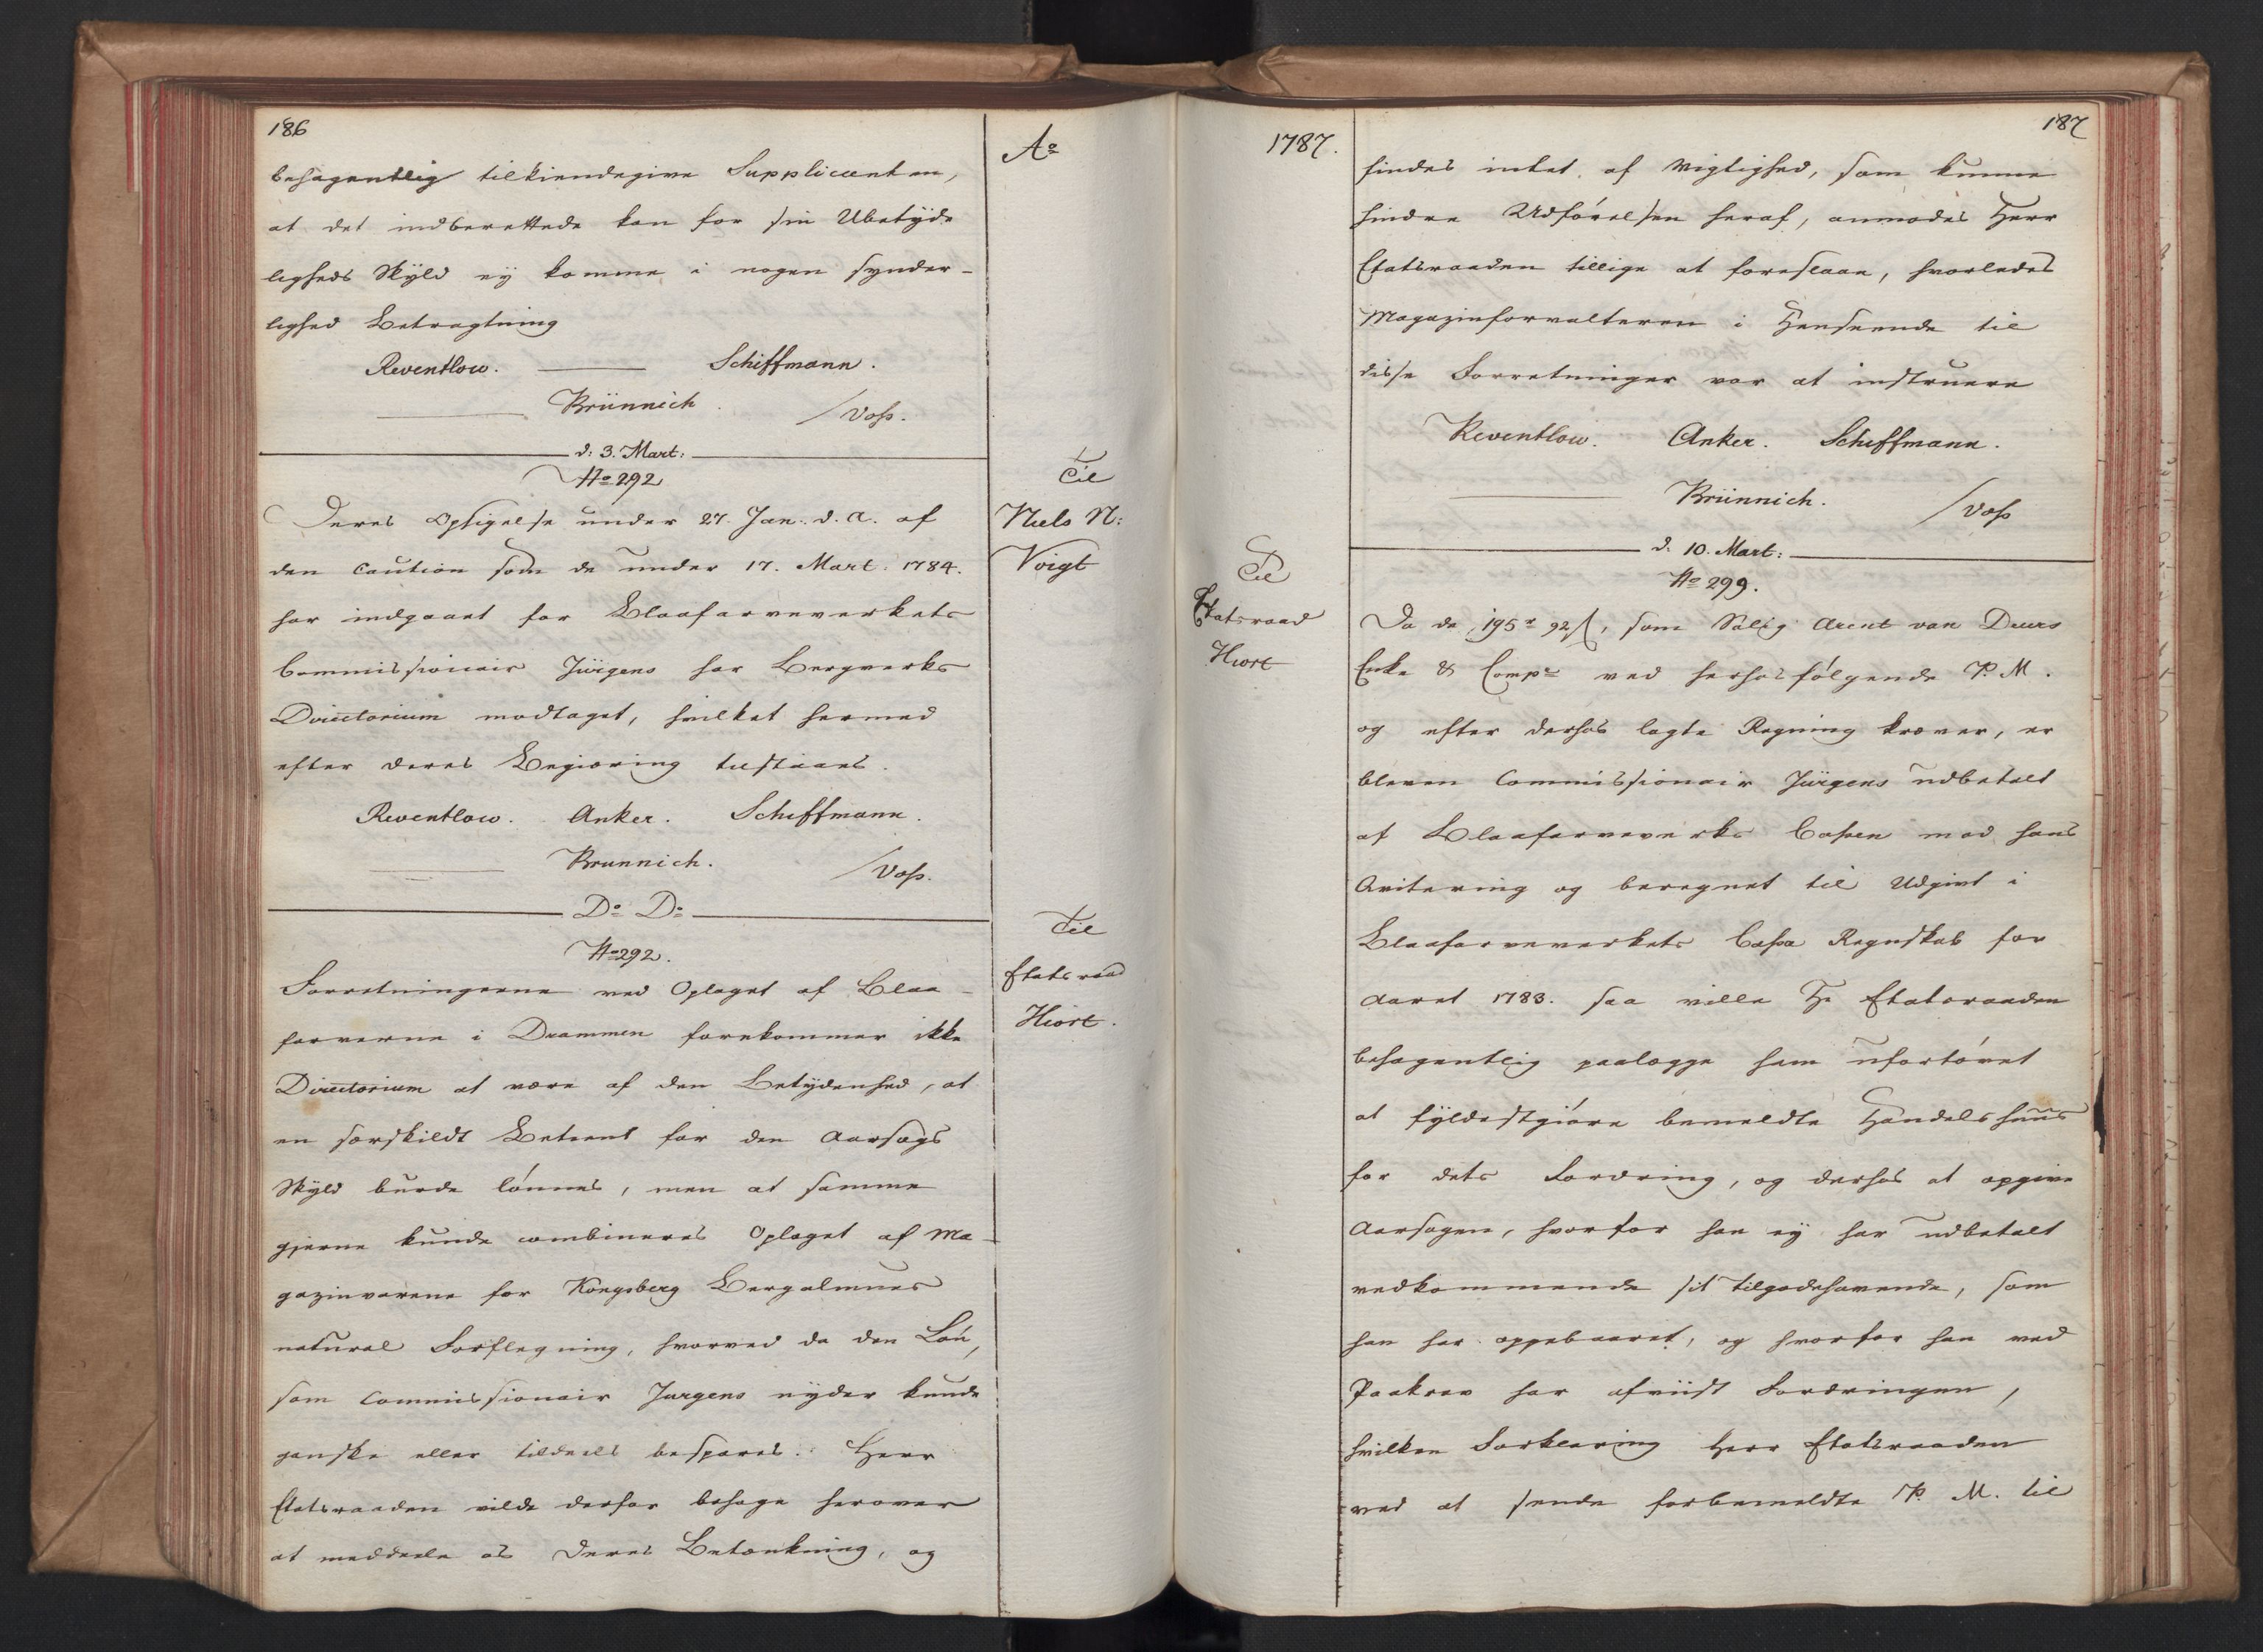 186
A͞o
behagentlig tilkiendegive Supplicanten,
at det indberettede kan for sin Ubetÿde
ligheds Skÿld eÿ komme i nogen synder-
lighed Betragtning
Reventlow. Schiffmann.
Brünnich. /Voss.
d: 3. Mart:
No 292
Til
Niels N:
Voigt
Deres Opsigelse under 27 Jan. d. a. af
den Caution som de under 17. Mart. 1784.
har indgaaet for Blaafarveverkets
Commissionair Jürgens har Bergverks
Directorium modtaget, hvilket hermed
efter deres Begiæring tilstaaes.
Reventlow. Anker. Schiffmann.
Brunnich. /Voss.
Do Do
No 292.
Til
Etatsraad
Hiort.
Forretningerne ved Oplaget af Blaa-
farverne i Drammen forekommer ikke
Directorium at være af den Betÿdenhed, at
en særskildt Betient for den Aarsags
Skÿld burde lónnes, men at samme
gjerne kunde combineres Oplaget af Ma-
gazinvarene for Kongsberg Bergalmues
natural Forflegning, hvorved da den Lón,
som Commissionair Jurgens nÿder kunde
ganske eller tildeels bespares. Herr
Etatsraaden vilde derfor behage herover
at meddeele os Deres Betænkning, og
1787.
187
findes intet af Vigtighed, som kunne
hindre Udfórelsen heraf, anmodes Herr
Etatsraaden tillige at foreslaae, hvorledes
Magazinforvalteren i Henseende til
disse Forretninger var at instruere
Reventlow. Anker. Schiffmann.
Brünnich. /Voss
d. 10. Mart:
No 299.
Til
Etatsraad
Hiort
Da de 195 r 92 s, som Salig Arent van Deurs
Enke & Comp. ved herhos fólgende P. M.
og efter derhos lagte Regning kræver, er
bleven Commissionair Jürgens udbetalt
af Blaafarveverks Cassen mod hans
Qvitering og beregnet til Udgivt i
Blaafarveverkets Cassa Regnskab for
Aaret 1783. saa ville Hr Etatsraaden
behagentlig paalægge ham ufortóvet
at fÿldestgióre bemeldte Handelshuus
for dets Fordring, og derhos at opgive
Aarsagen, hvorfor han eÿ har udbetalt
vedkommende sit tilgodehavende, som
han har oppebaaret, og hvorfor han ved
Paakrav har afviist Fordringen,
hvilken Forklaring Herr Etatsraaden
ved at sende forbemeldte P. M. til